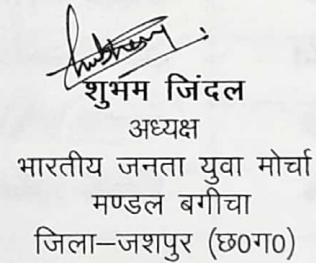 शुभम जिंदल
अध्यक्ष
भारतीय जनता युवा मोर्चा
मण्डल बगीचा
जिला–जशपुर (छ0ग0)